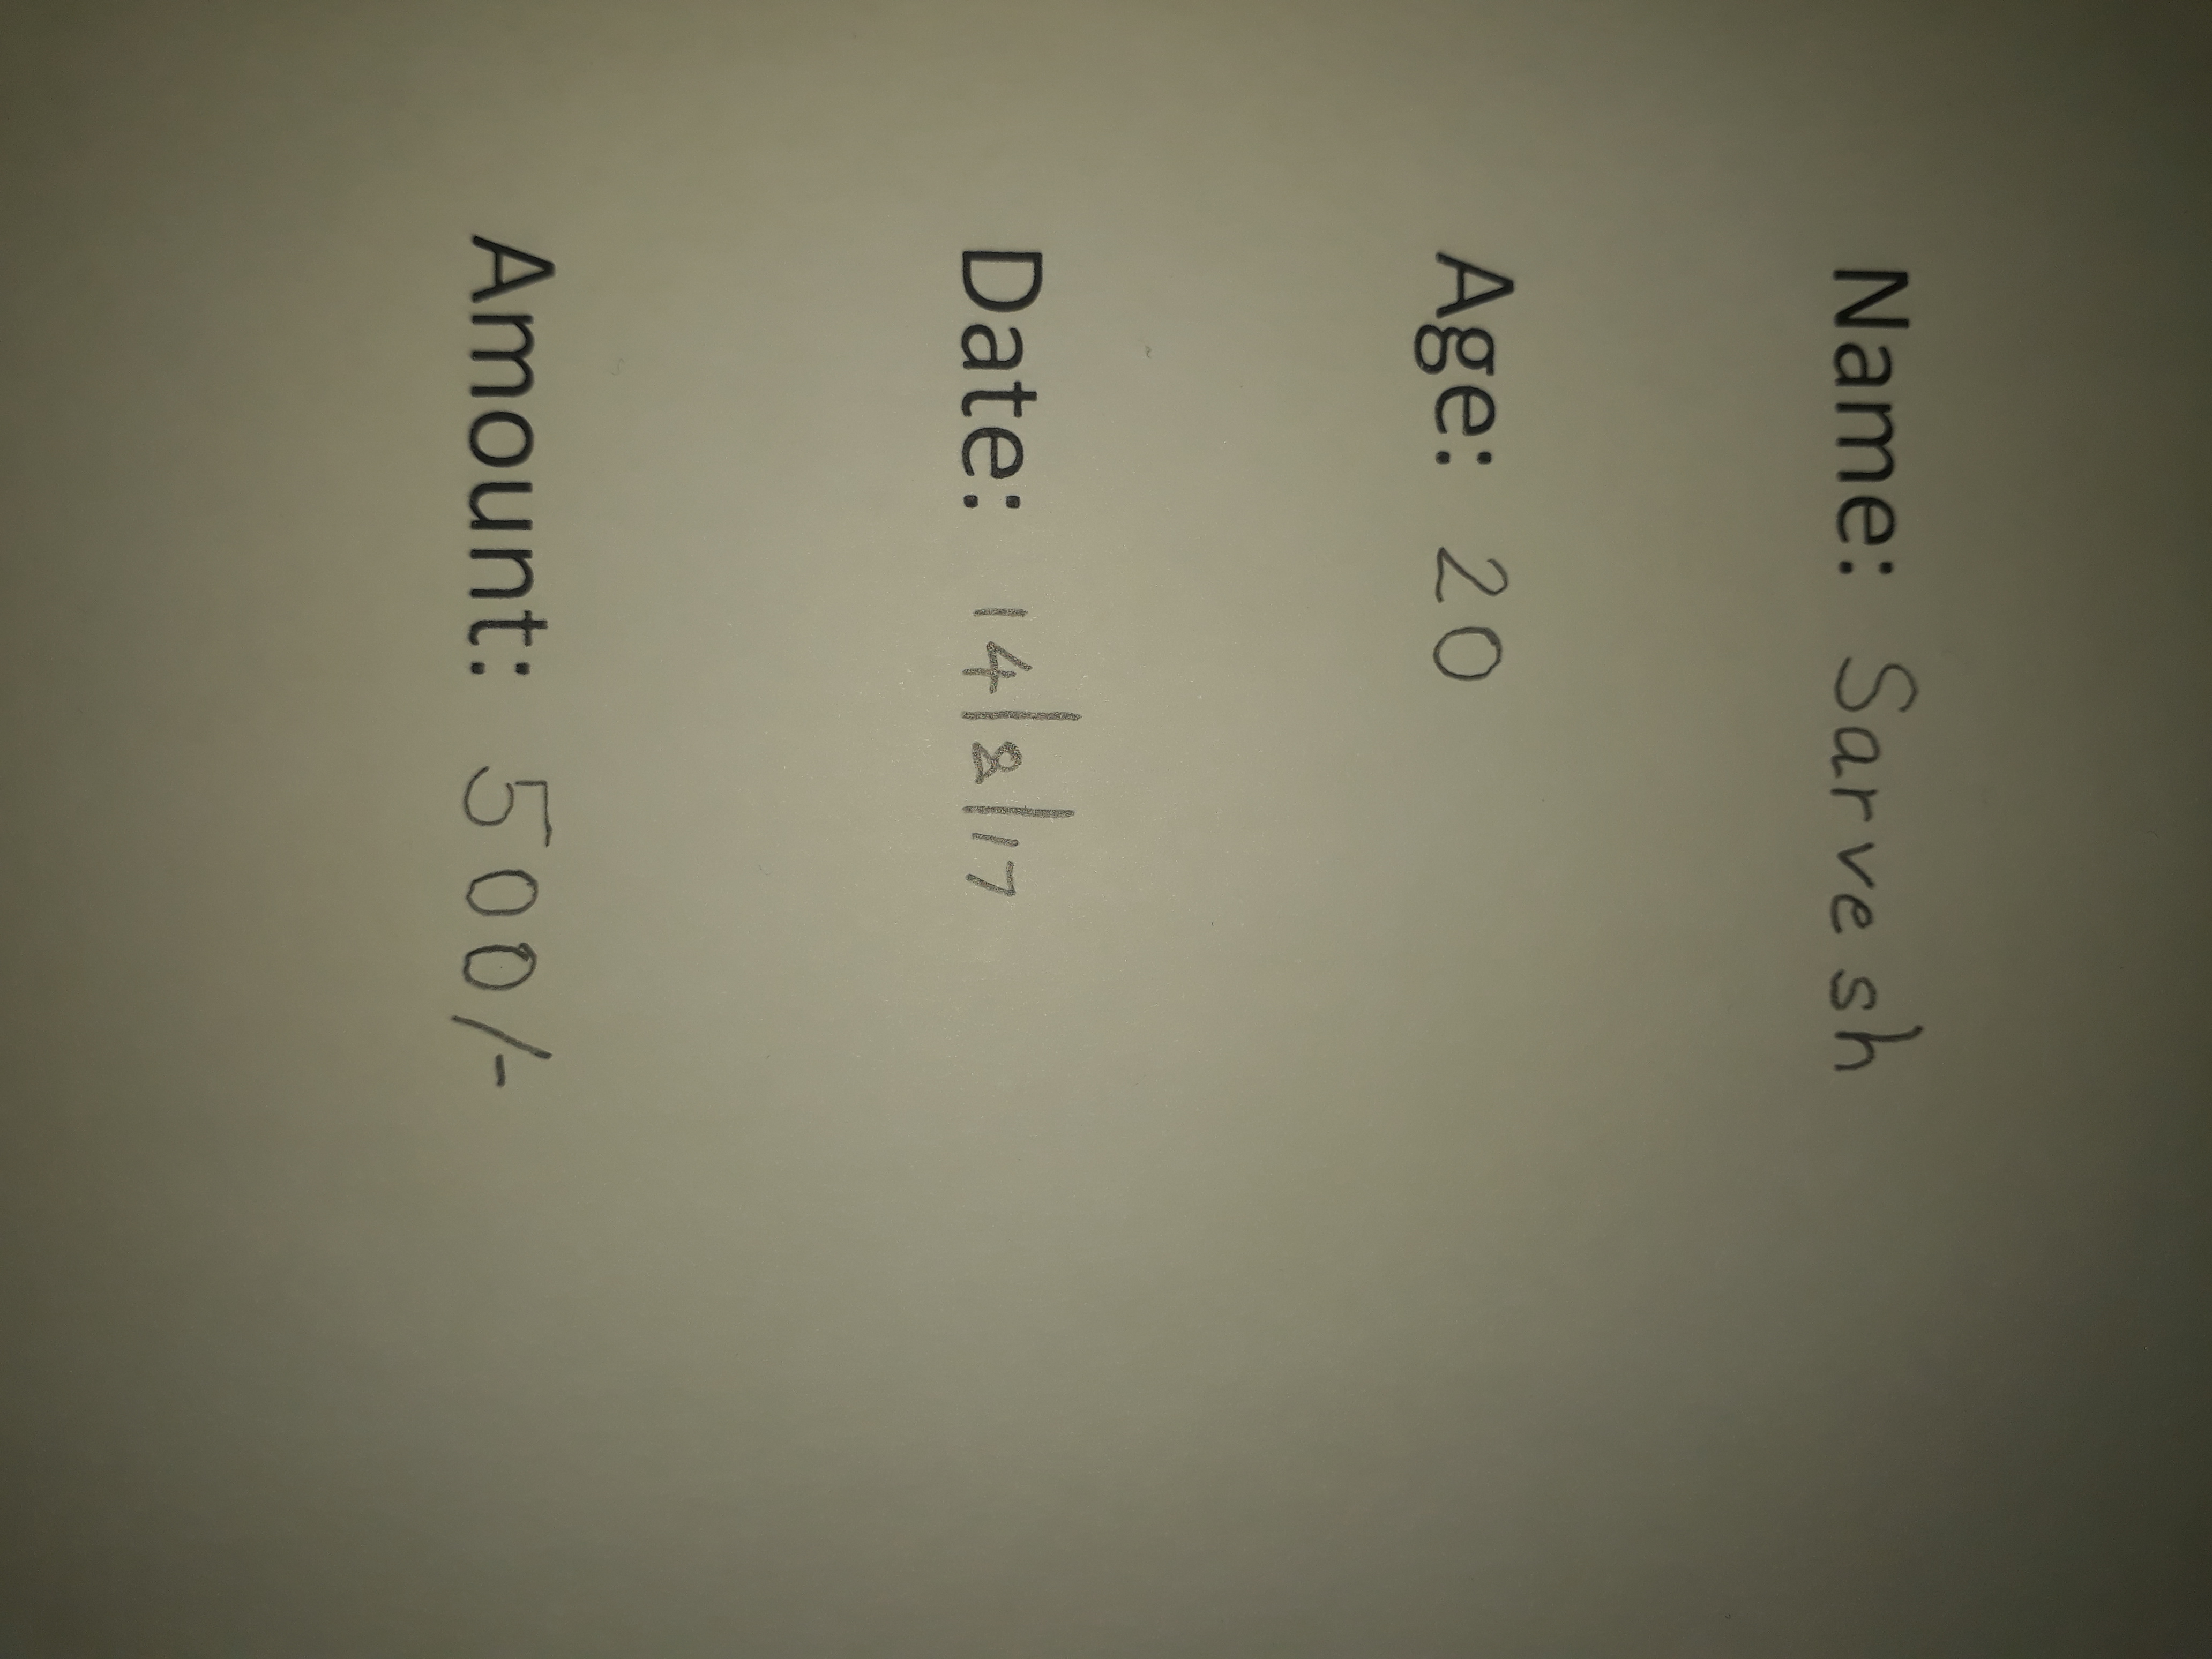 Name: Sarvesh
Age: 20
Date: 14/8/17
Amount: 500/-